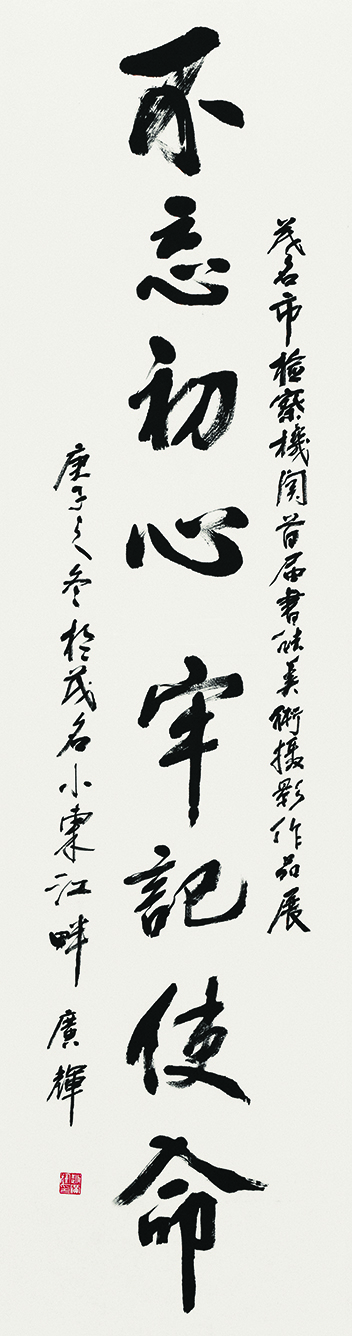 茂名市檢察機関首届書法美術攝影作品展
不忘初心牢記使命
庚子之冬於茂名小東江畔廣輝